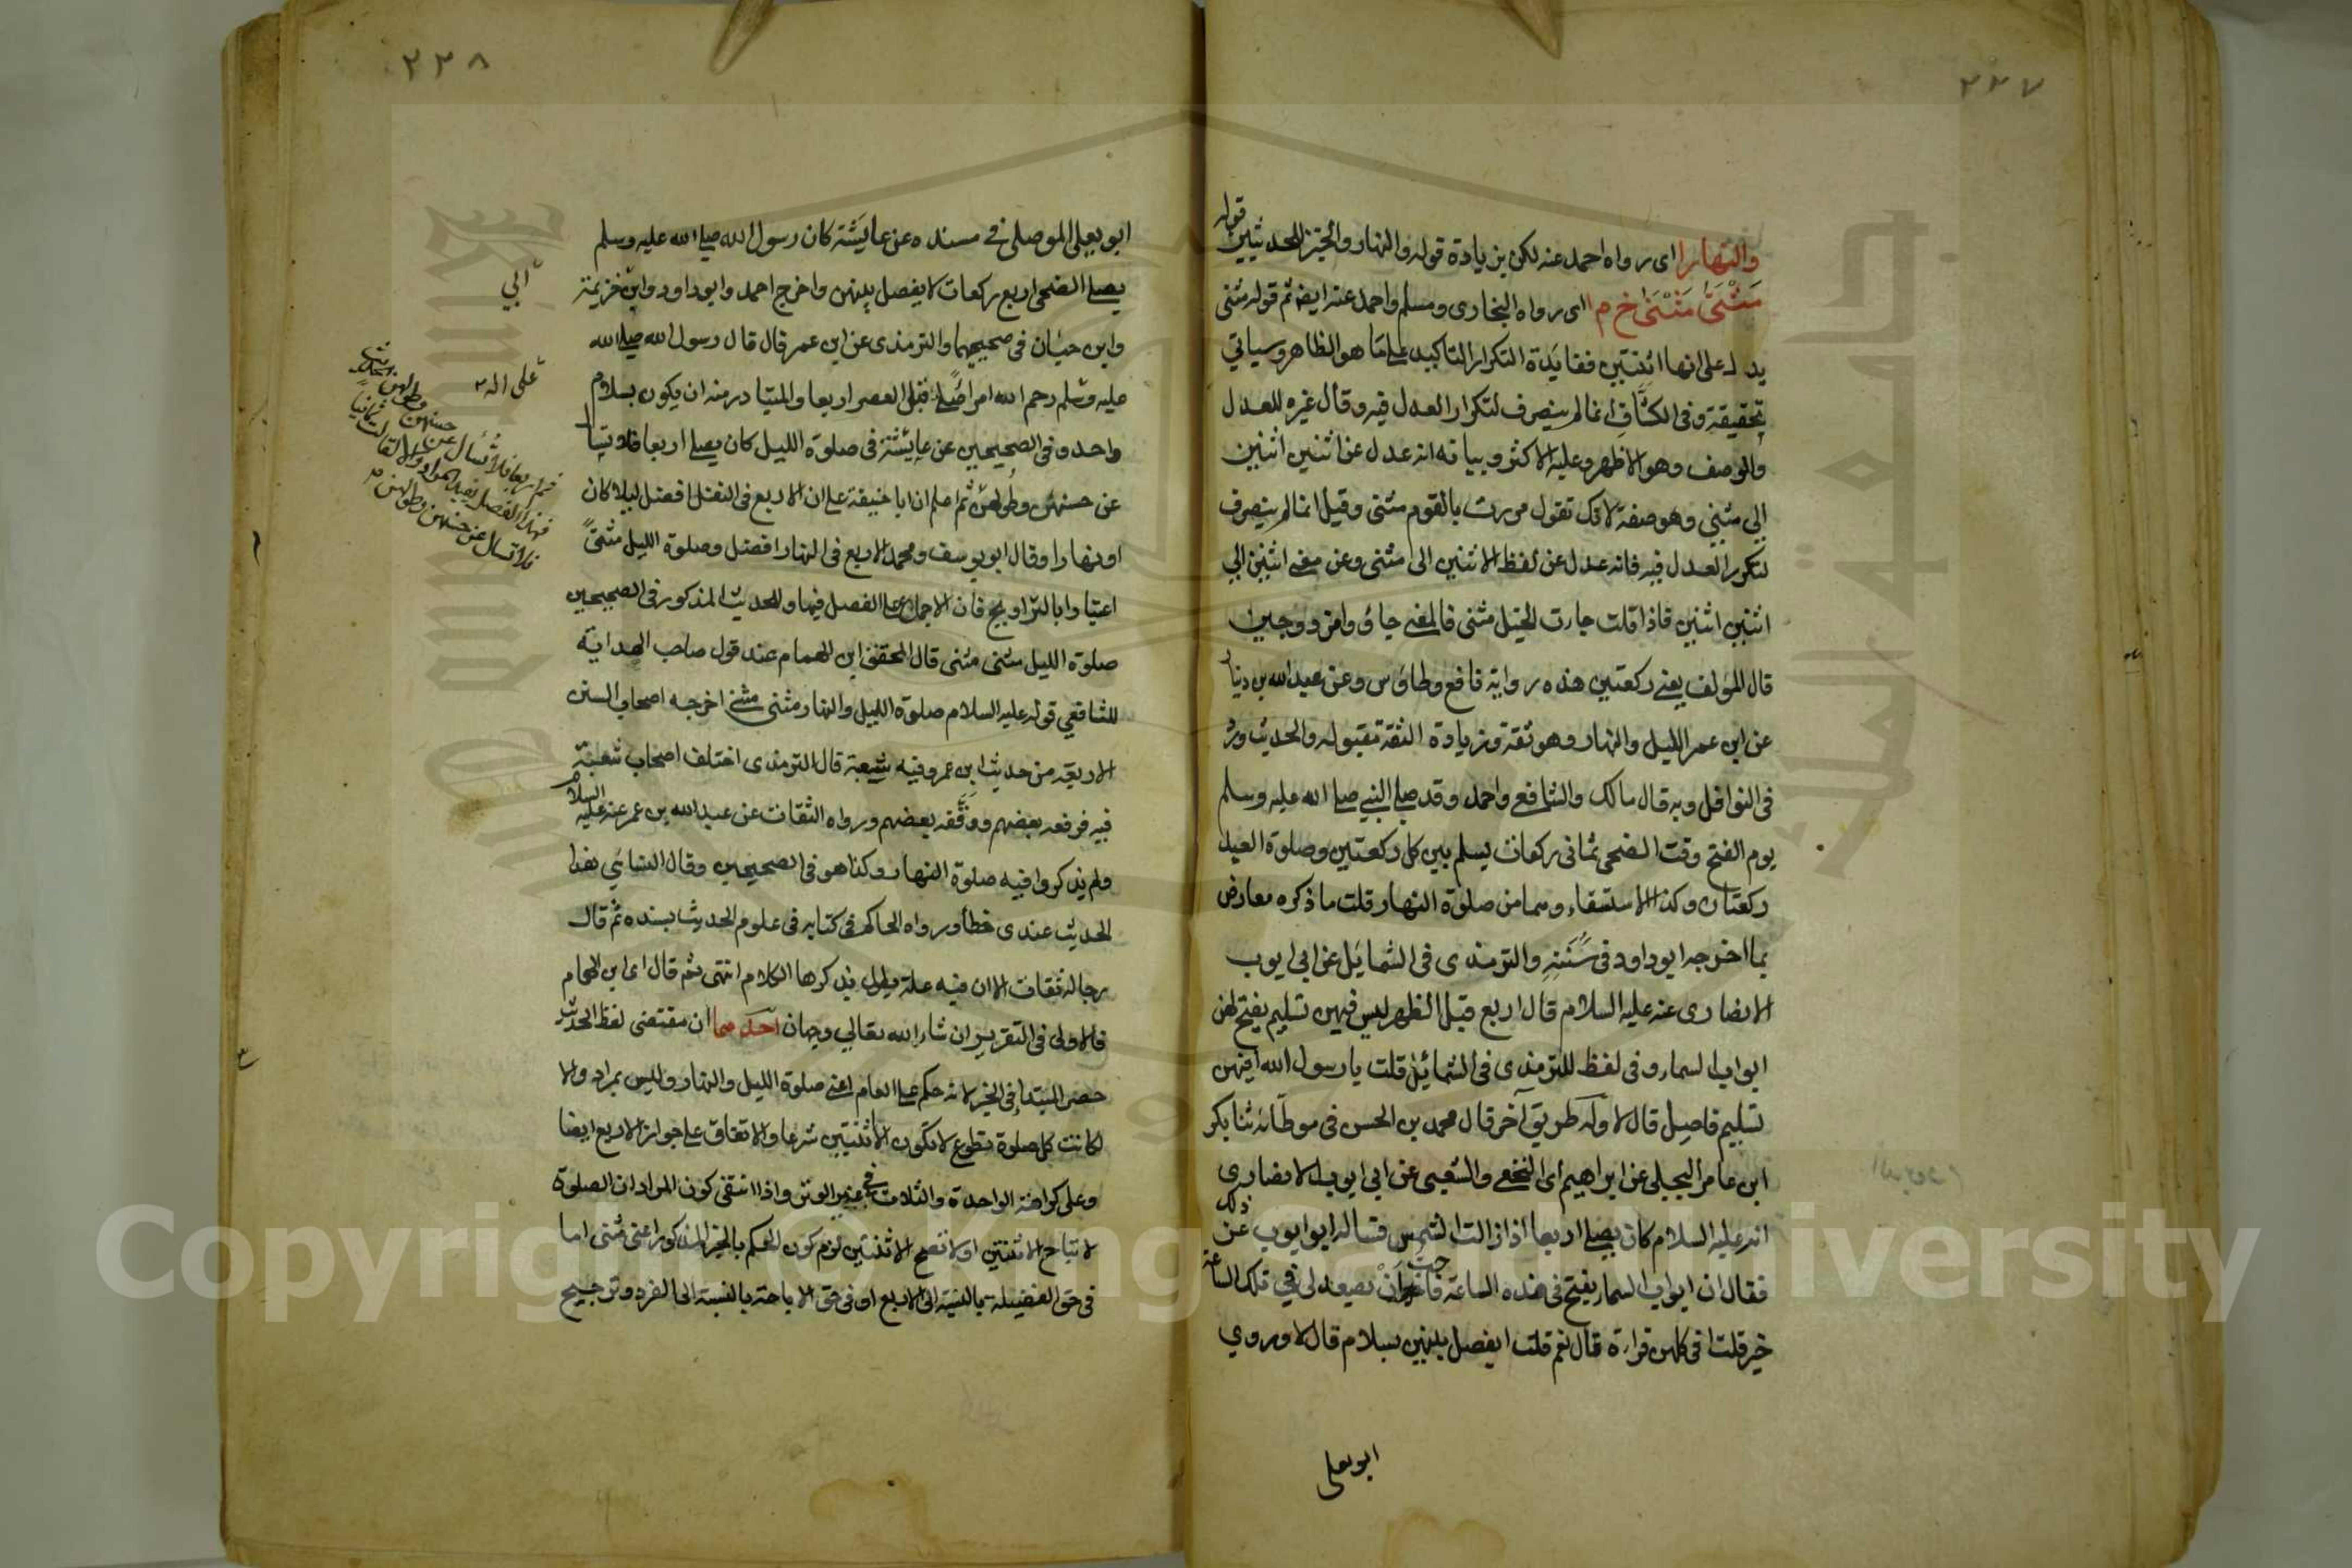 ٢٢٧
والنهار ا اى رواه احمد عنه لكن بزيادة قوله والنهار والخبر للحديثين قوله
مَثْنَىٰ مَثْنَىٰ خ م ا اى رواه البخارى ومسلم واحمد عنه ايضا ثم قوله مثنى
يدل على انها اثنتين ففائدة التكرار التاكيد على ما هو الظاهر وسياتي
تحقيقة وفى الكشاف انما لم ينصرف لتكرار العدل فيه وقال غيره للعدل
والوصف وهو الاظهر وعليه الاكثر وبيانه انه عدل عن اثنين اثنين
الى مثنى وهو صفة لانك تقول مررت بالقوم مثنى وقيل انما لم ينصرف
لتكرر العدل فيه فانه عدل عن لفظ الاثنين الى مثنى وعن معنى اثنين الى
اثنين اثنين فاذا قلت جارت الخيل مثنى فالمعنى جاؤ وامزدوجين
قال المؤلف يعنى ركعتين هذه رواية نافع وطاؤس وعن عبد الله بن دينار
عن ابن عمر الليل والنهار وهو ثقة وزيادة الثقة مقبوله والحديث ورد
فى النوافل وبه قال مالك والشافع واحمد وقد صلى النبي صلى الله عليه وسلم
يوم الفتح وقت الضحى ثمانى ركعات يسلم بين كل ركعتين وصلوة العيد
ركعتان وكذا الاستسقاء وهما من صلوة النهار قلت ما ذكره معارض
بما اخرجه ابو داود فى سننه والترمذى فى الشمايل عن ابى ايوب
الانصارى عنه عليه السلام قال اربع قبل الظهر ليس فيهن تسليم يفتح لهن
ابواب السماء وفى لفظ للترمذى فى الشمائل قلت يا رسول الله افيهن
تسليم فاصل قال لا وله طريق آخر قال محمد بن الحسن فى موطائه ثنا بكر
ابن عامر البجلى عن ابراهيم اى النخعى والشعبى عن ابى ايوب الانصارى
انه عليه السلام كان يصلى اربعا اذا زالت الشمس فساله ابو ايوب عن ذلك
فقال ان ابواب السماء يفتح فى هذه الساعة فاحب ان يصعد لى فى تلك الساعة
خير قلت افى كلهن قراءة قال نعم قلت ايفصل بينهن بسلام قال لا وروي
ابو يعلى
٢٢٨
ابو يعلى الموصلى فى مسنده عن عايشة كان رسول الله صلى الله عليه وسلم
يصلى الضحى اربع ركعات لا يفصل بينهن واخرج احمد وابو داود وابن خزيمة
وابن حبان فى صحيحيهما والترمذى عن ابن عمر قال قال رسول الله صلى الله
عليه وسلم رحم الله امرأ صلى قبل العصر اربعا والمتبادر منه ان يكون بسلام
واحد وفى الصحيحين عن عايشة فى صلوة الليل كان يصلى اربعا فلا تسأل
عن حسنهن وطولهن ثم اعلم ان ابا حنيفة على ان الاربع فى النفل افضل ليلا كان
او نهارا وقال ابو يوسف ومحمد الاربع فى النهار افضل وصلوة الليل مثنى
اعتبارا بالتراويح فان الاجماع على الفصل فيها وللحديث المذكور فى الصحيحين
صلوة الليل مثنى مثنى قال المحقق ابن الهمام عند قول صاحب الهداية
للشافعي قوله عليه السلام صلوة الليل والنهار مثنى مثنى اخرجه اصحاب السنن
الاربعة من حديث ابن عمر وفيه شعبة قال الترمذى اختلف اصحاب شعبة
فيه فرفعه بعضهم ووقفه بعضهم ورواه الثقات عن عبد الله بن عمر عنه عليه السلام
ولم يذكروا فيه صلوة النهار وكذا هو فى الصحيحين وقال النسائى هذا
الحديث عندى خطأ ورواه الحاكم فى كتابه فى علوم الحديث بسنده ثم قال
رجاله ثقات الا ان فيه علة يطول بذكرها الكلام انتهى ثم قال اى ابن الهمام
فالاولى فى التقرير ان شاء الله تعالى وجهان احدهما ان مقتضى لفظ الحديث
حصر المبتدأ فى الخبر لانه حكم على العام اعنى صلوة الليل والنهار وليس بمراد والا
لكانت كل صلوة تطوع لا تكون الا ثنتين شرعا والاتفاق على جواز الاربع ايضا
وعلى كراهة الواحدة والثلاث فى غير الوتر واذا انتفى كون المراد ان الصلوة
لا تباح الا ثنتين او لا تصح الا ثنتين لزم كون الحكم بالخبر المذكور اعنى مثنى اما
فى حق الفضيلة بالنسبة الى الاربع او فى حق الاباحة بالنسبة الى الفرد وترجيح
ابي
على اله
ثم اربعا فلا تسأل عن حسنهن وطولهن
فهذا الفصل يفيد المراد والا لقالت ثمانيا
فلا تسال عن حسنهن وطولهن
Copyright © King Saud University